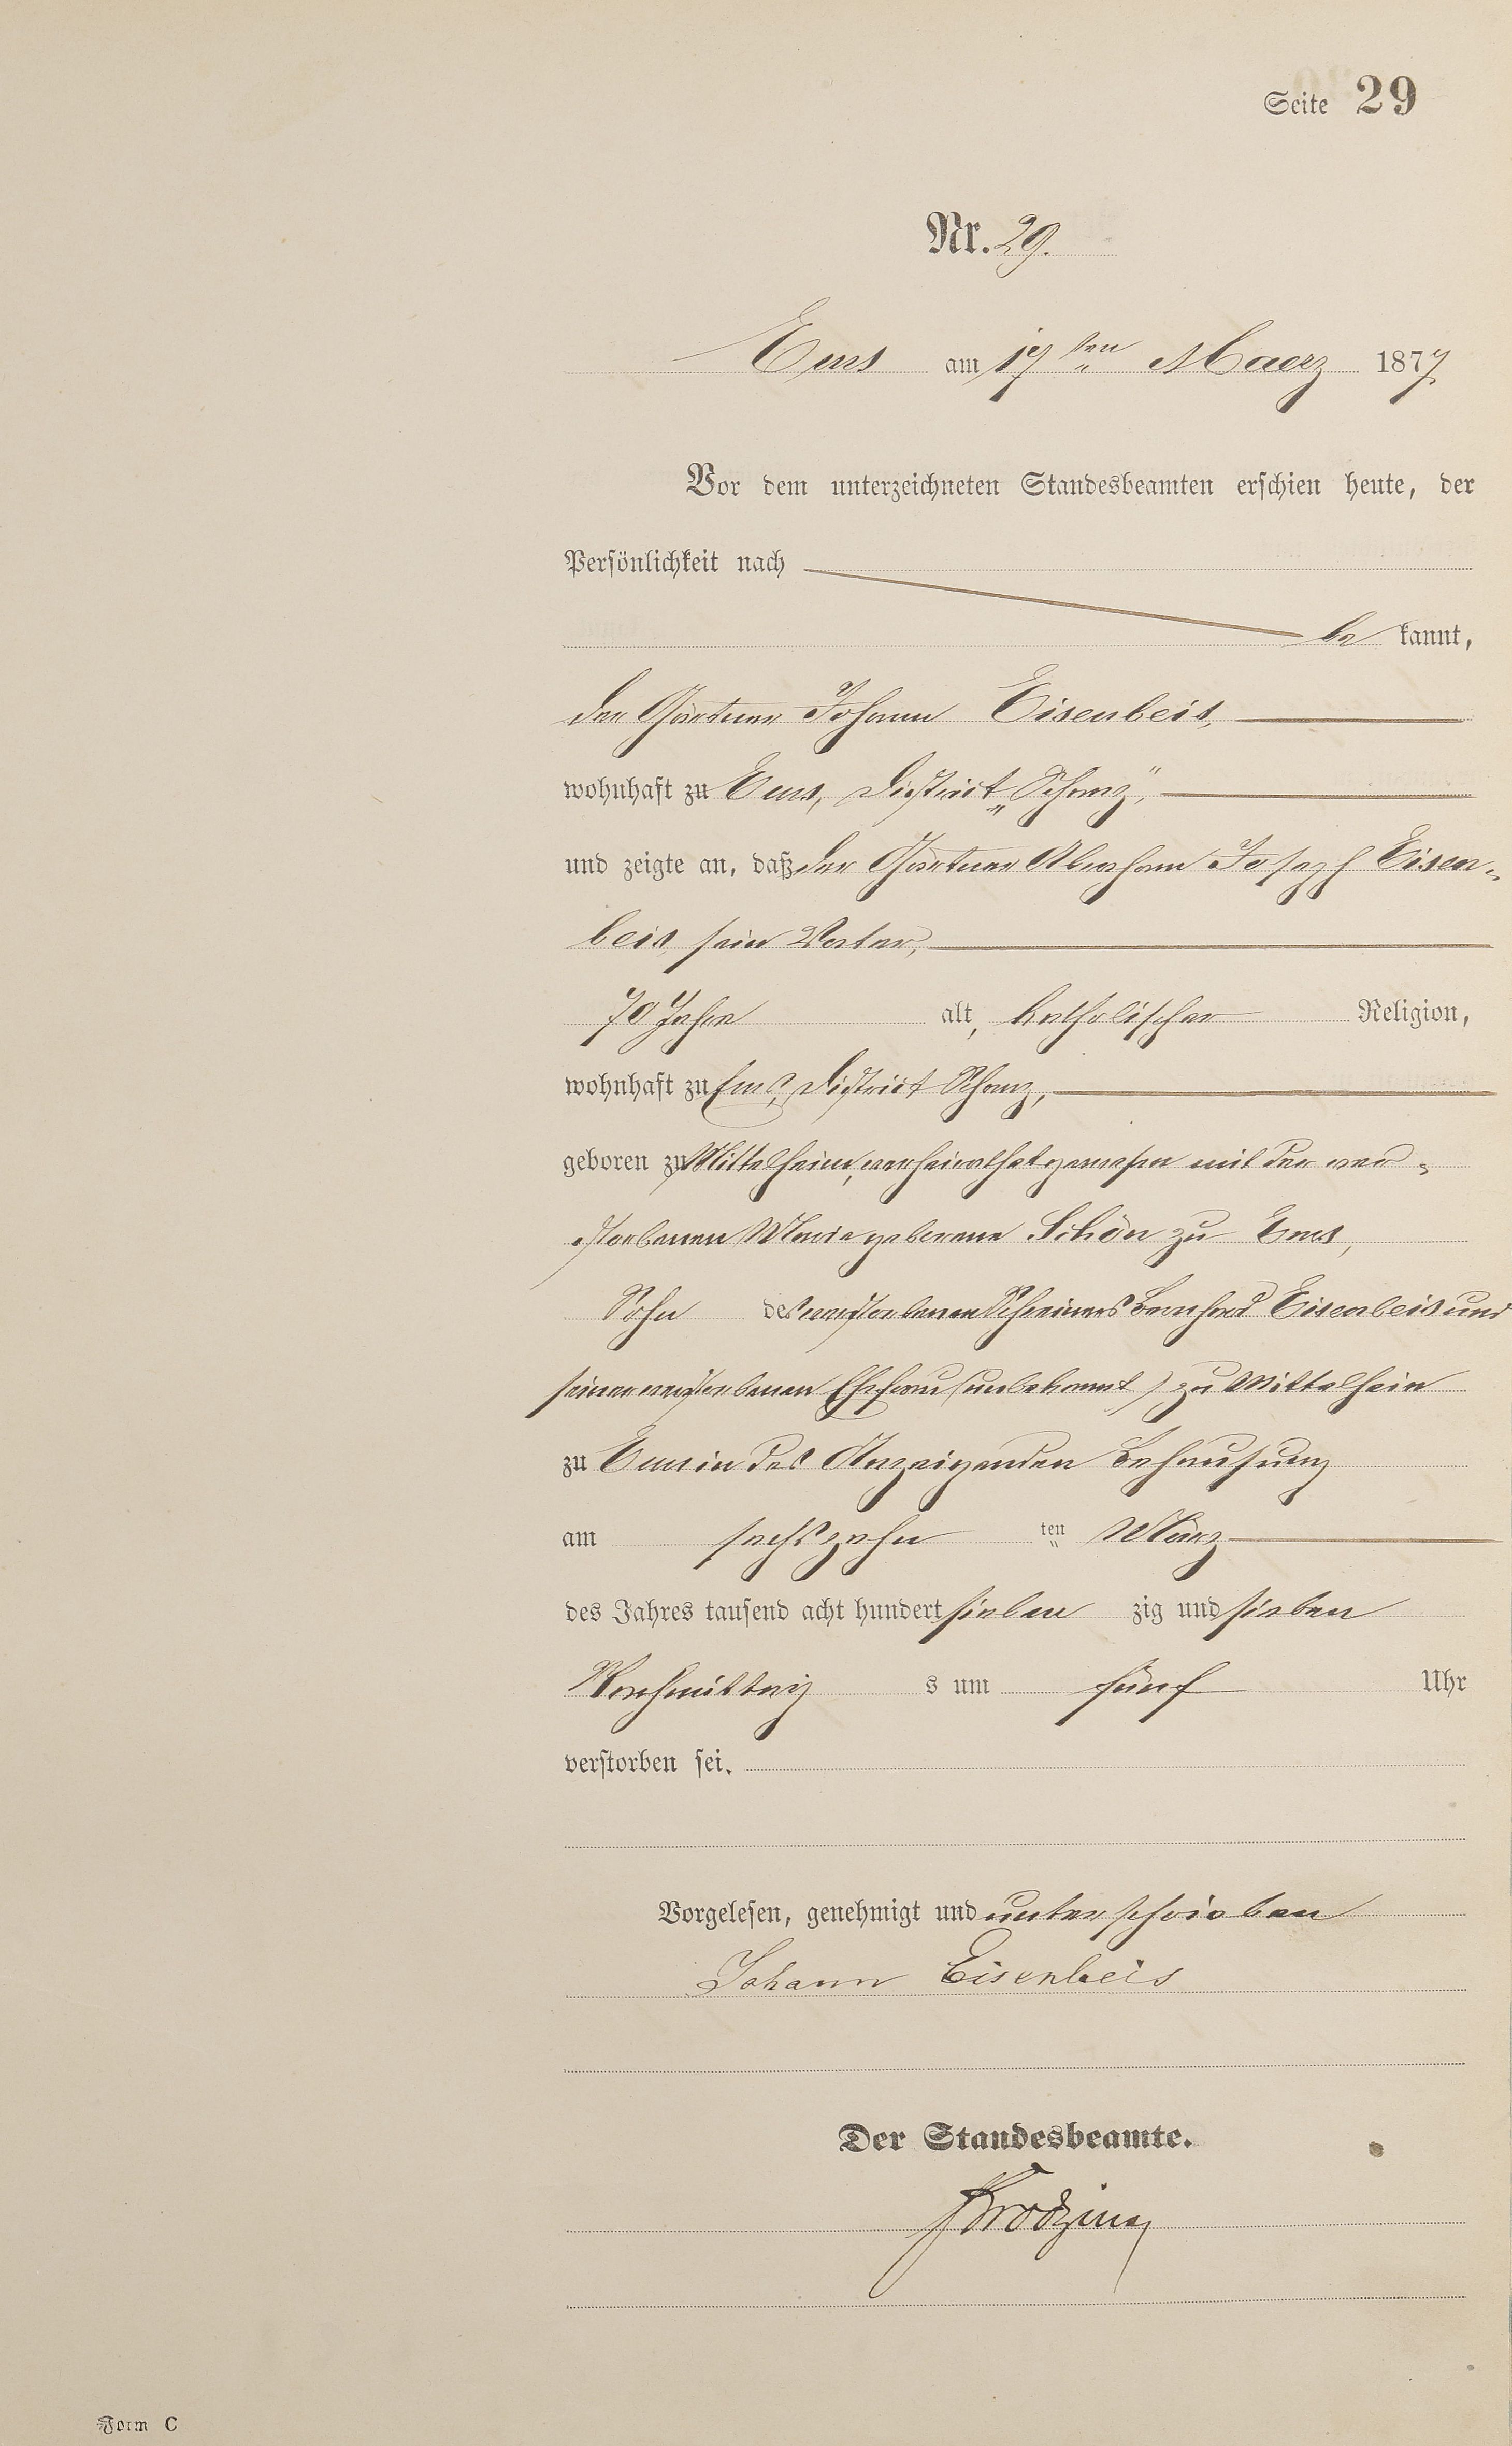 Seite 29
Nr. 29.
Ems am 17ten Maerz 1877.
Vor dem unterzeichneten Standesbeamten erschien heute, der
Persönlichkeit nach
be kannt,
der Gärtner Johann Eisenbeis,
wohnhaft zu Ems, District „Schanz",
und zeigte an, daß der Gärtner Abraham Joseph Eisen-
beis, sein Vater,
70 Jahre alt, katholischer Religion,
wohnhaft zu Ems, District Schanz,
geboren zu Mittelheim, verheirathet gewesen mit der ver-
storbenen Maria geborene Schön zu Ems,
Sohn des verstorbenen Schreiners Bernhard Eisenbeis und
seiner verstorbenen Ehefrau (unbekannt) zu Mittelheim
zu Ems in des Anzeigenden Behausung
am sechszehn ten März
des Jahres tausend acht hundert sieben zig und sieben
Nachmittag s um fünf Uhr
verstorben sei.
Vorgelesen, genehmigt und unterschrieben
Johann Eisenbeis
Der Standesbeamte.
Form C